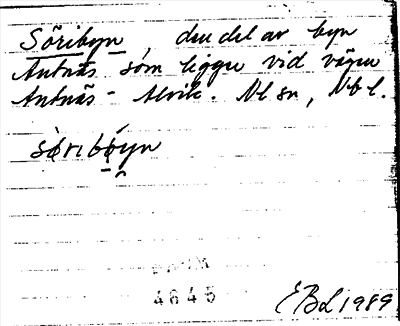 Söribyn den del av byn
Antnäs som ligger vid vägen
Antnäs - Alvik. Nl sn, Nbl.
söriböyn
4645
EBL 1989